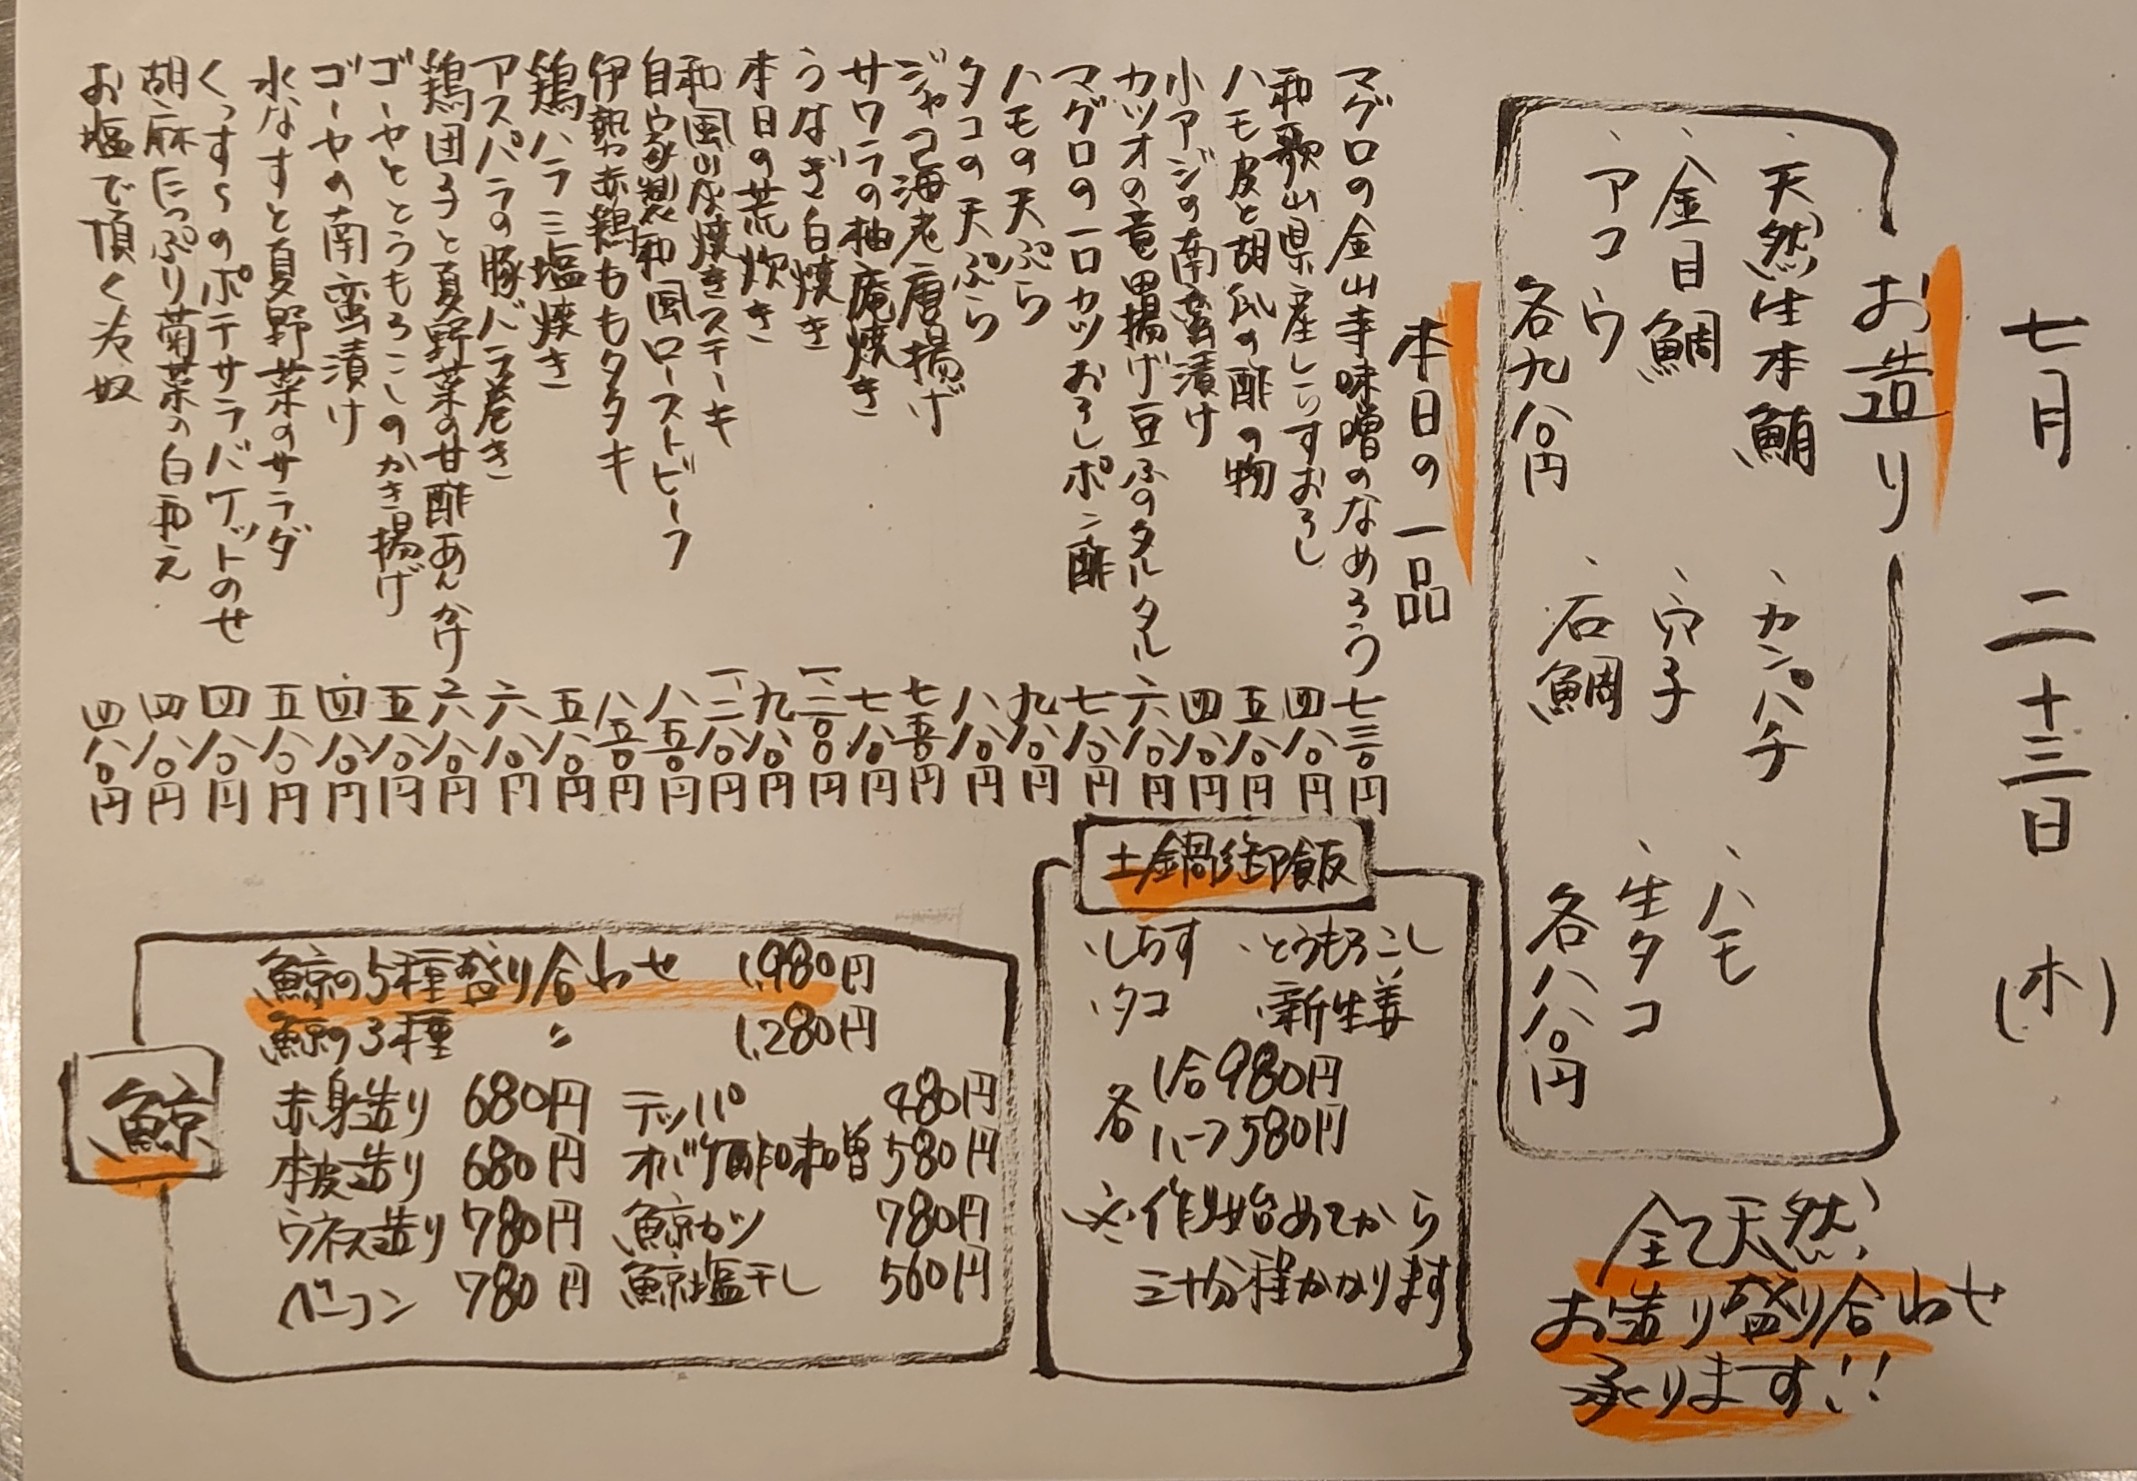 七月 二十三日 (木)
お造り
、天然生本鮪 、カンパチ 、ハモ
、金目鯛 、穴子 、生タコ
、アコウ 、石鯛
各九八〇円 各八八〇円
全て天然
お造り盛り合わせ
承ります!!
本日の一品
マグロの金山寺味噌のなめろう 七三〇円
和歌山県産しらすおろし 四八〇円
ハモ皮と胡瓜の酢の物 五八〇円
小アジの南蛮漬け 四八〇円
カツオの竜田揚げ豆ふのタルタル 六八〇円
マグロの一口カツおろしポン酢 七八〇円
ハモの天ぷら 九八〇円
タコの天ぷら 八八〇円
ジャコ海老唐揚げ 七五〇円
サワラの柚庵焼き 七八〇円
うなぎ白焼き 一、二〇〇円
本日の荒炊き 九八〇円
和風山水焼きステーキ 一、二八〇円
自家製和風ローストビーフ 八五〇円
伊勢赤鶏ももタタキ 八五〇円
鶏ハラミ塩焼き 五八〇円
アスパラの豚バラ巻き 六八〇円
鶏団子と夏野菜の甘酢あんかけ 六八〇円
ゴーヤととうもろこしのかき揚げ 五八〇円
ゴーヤの南蛮漬け 四八〇円
水なすと夏野菜のサラダ 五八〇円
くっすんのポテサラバケットのせ 四八〇円
胡麻たっぷり菊菜の白和え 四八〇円
お塩で頂く冷奴 四八〇円
土鍋御飯
・しらす ・とうもろこし
・タコ ・新生姜
各 1合980円
ハーフ580円
※作り始めてから
三十分程かかります
鯨
鯨の5種盛り合わせ 1,980円
鯨の3種 〃 1,280円
赤身造り 680円 テッパ 480円
本皮造り 680円 オバケ酢味噌 580円
ウネス造り 780円 鯨カツ 780円
ベーコン 780円 鯨塩干し 560円